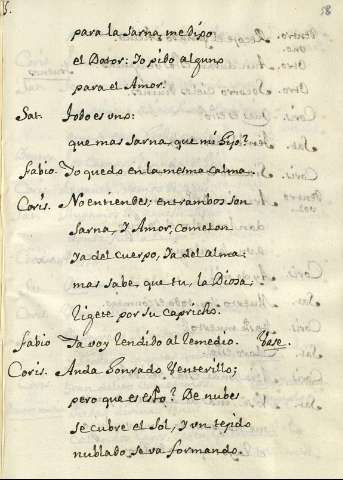 58
para la Sarna me dixo
el Dotor: Yo pido alguno
para el Amor.
Sat. Todo es uno:
que mas Sarna, que mi Hijo?
Fabio. Yo quedo en la mesma calma.
Coris. No entiendes; entrambos son
Sarna, y Amor, comezon
Ya del cuerpo, Ya del alma:
mas sabe que tu, la Diosa,
rigete por su capricho.
Fabio Ya voy rendido al remedio. Vase.
Coris. Anda honrado Venterillo;
pero que es esto? De nubes
se cubre el Sol, y vn tejido
nublado se va formando.